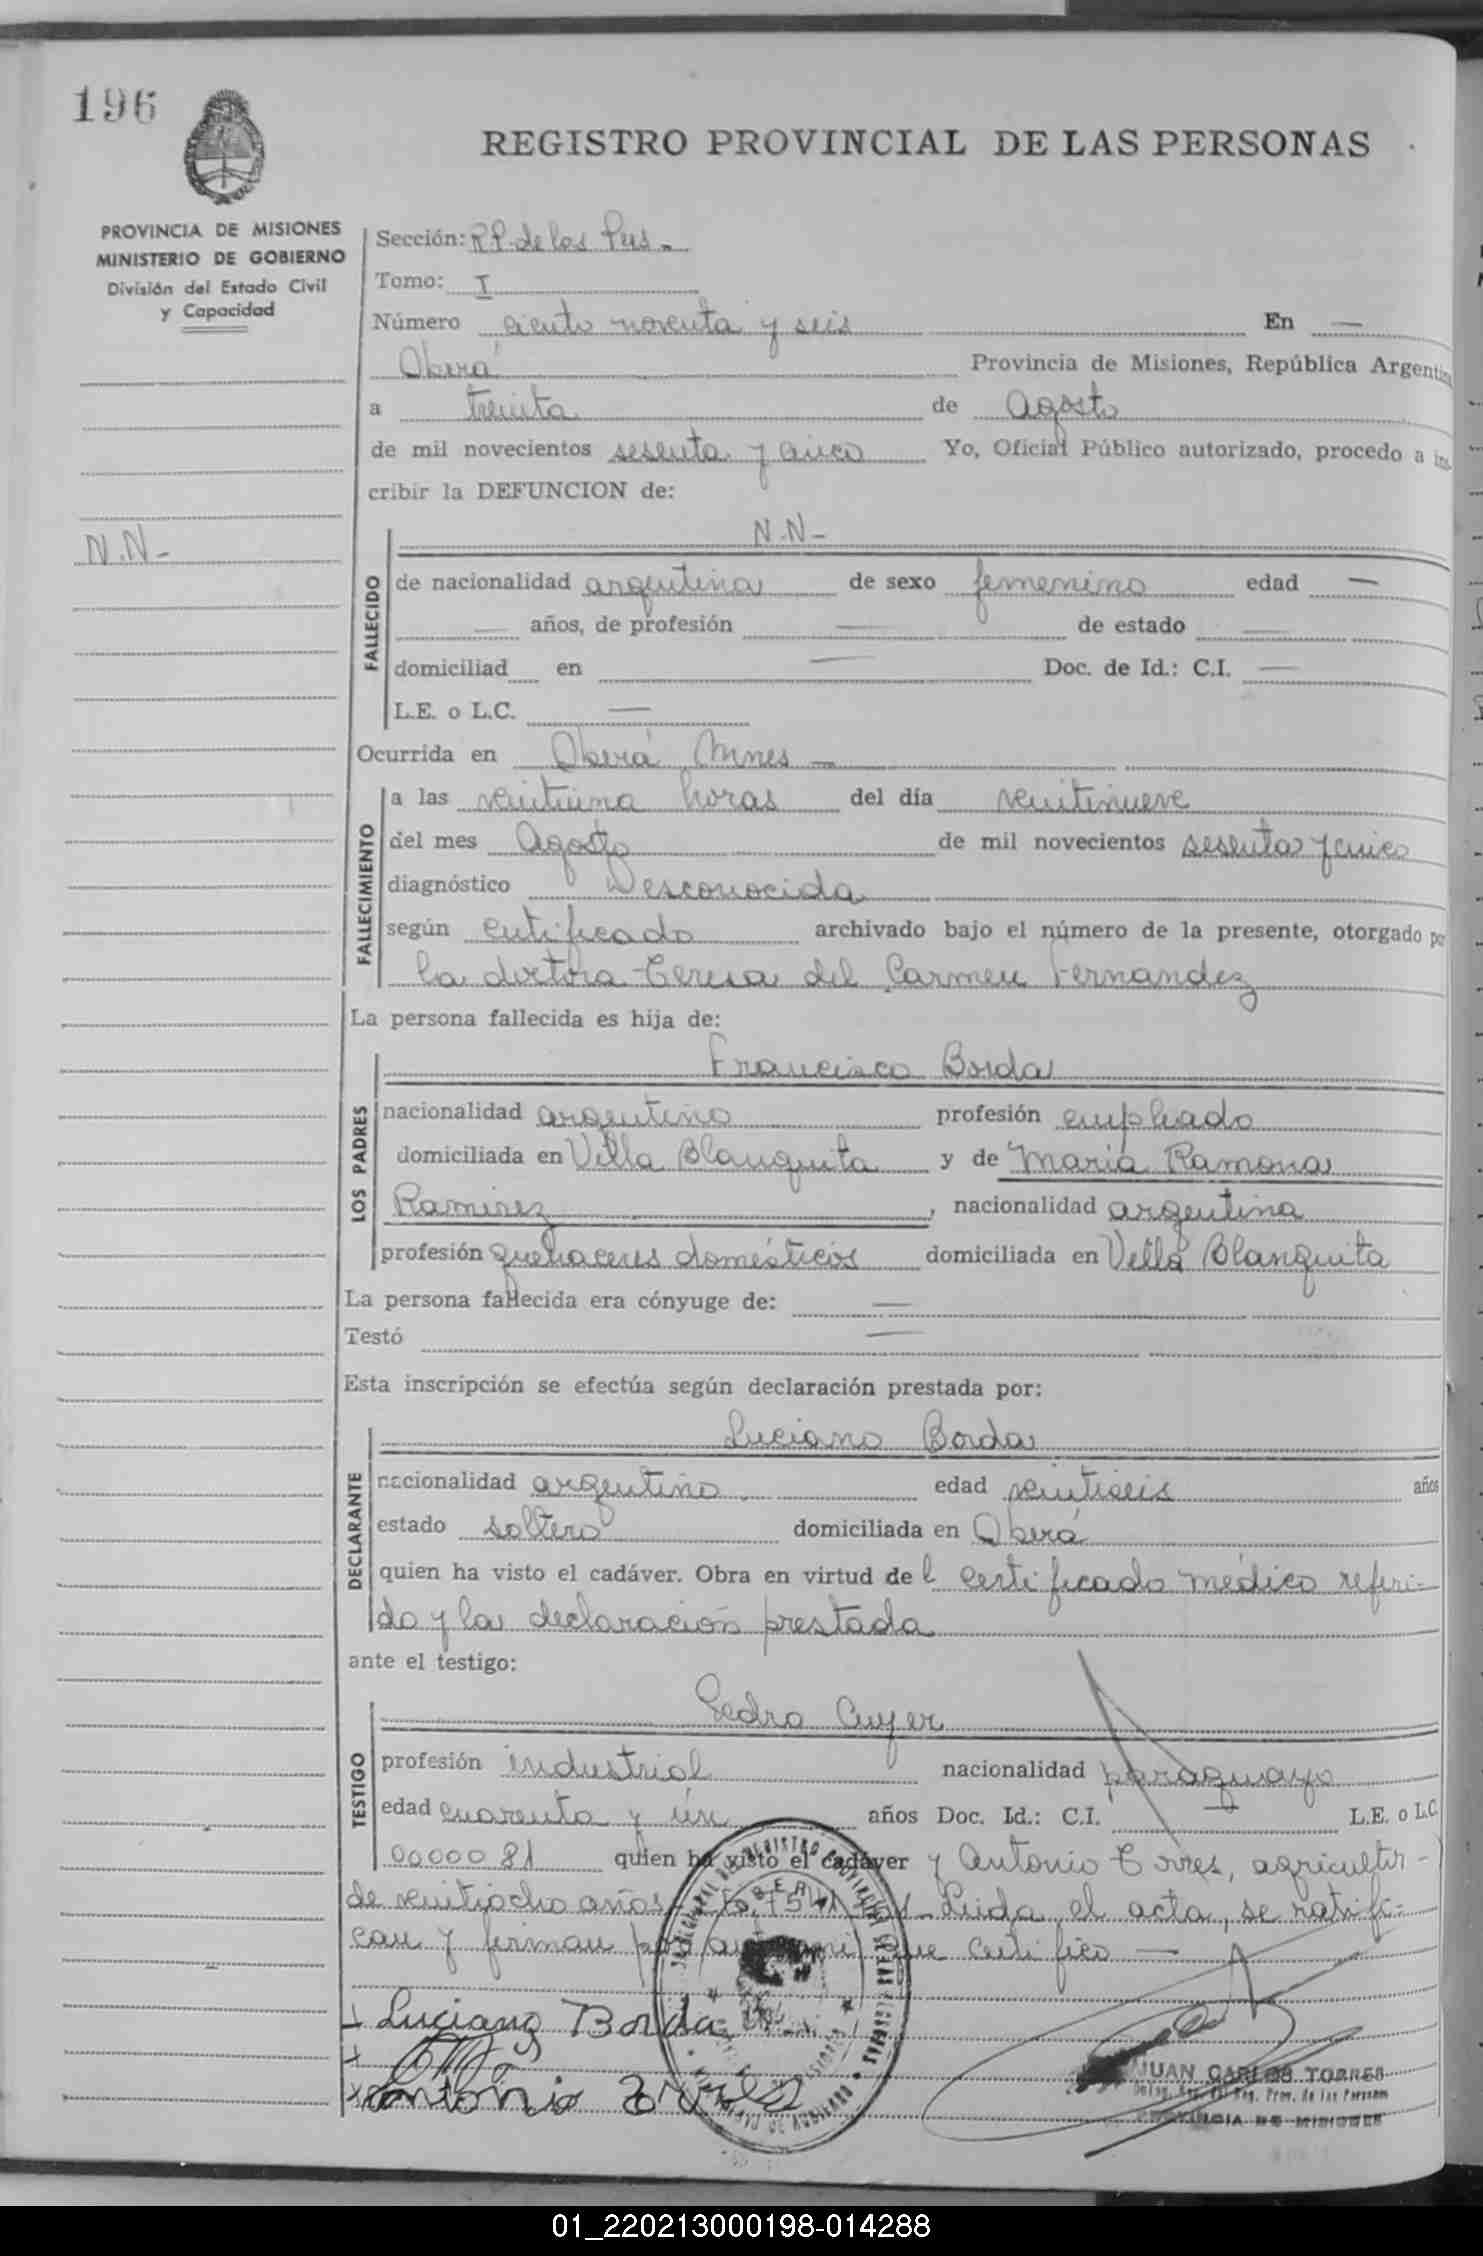 196
REGISTRO PROVINCIAL DE LAS PERSONAS
PROVINCIA DE MISIONES
MINISTERIO DE GOBIERNO
División del Estado Civil
y Capacidad
N.N-
Sección: R.P. de las Pers.
Tomo: I
Número ciento noventa y seis En —
Oberá Provincia de Misiones, República Argentina
a treinta de Agosto
de mil novecientos sesenta y cinco Yo, Oficial Público autorizado, procedo a ins-
cribir la DEFUNCION de:
FALLECIDO
N.N-
de nacionalidad argentina de sexo femenino edad —
— años, de profesión — de estado —
domiciliad en — Doc. de Id.: C.I. —
L.E. o L.C. —
Ocurrida en Oberá Mnes —
FALLECIMIENTO
a las veintiuna horas del día veintinueve
del mes Agosto de mil novecientos sesenta y cinco
diagnóstico Desconocida
según certificado archivado bajo el número de la presente, otorgado por
la doctora Teresa del Carmen Fernandez
La persona fallecida es hija de:
LOS PADRES
Francisco Borda
nacionalidad argentino profesión empleado
domiciliada en Villa Blanquita y de Maria Ramona
Ramirez, nacionalidad argentina
profesión quehaceres domésticos domiciliada en Villa Blanquita
La persona fallecida era cónyuge de: —
Testó —
Esta inscripción se efectúa según declaración prestada por:
DECLARANTE
Luciano Borda
nacionalidad argentino edad veintiseis años
estado soltero domiciliada en Oberá
quien ha visto el cadáver. Obra en virtud de l certificado médico referi-
do y la declaración prestada
ante el testigo:
TESTIGO
Pedro Cuyer
profesión industrial nacionalidad paraguayo
edad cuarenta y ún años Doc. Id.: C.I. — L.E. o L.C.
0000081 quien ha visto el cadáver y Antonio Torres, agricultor-
de veintiocho años Leida el acta, se ratifi-
can y firman por ante mi que certifico —
Luciano Borda
Antonio Torres
JUAN CARLOS TORRES
Deleg. Reg. del Reg. Prov. de las Personas
PROVINCIA DE MISIONES
01_220213000198-014288